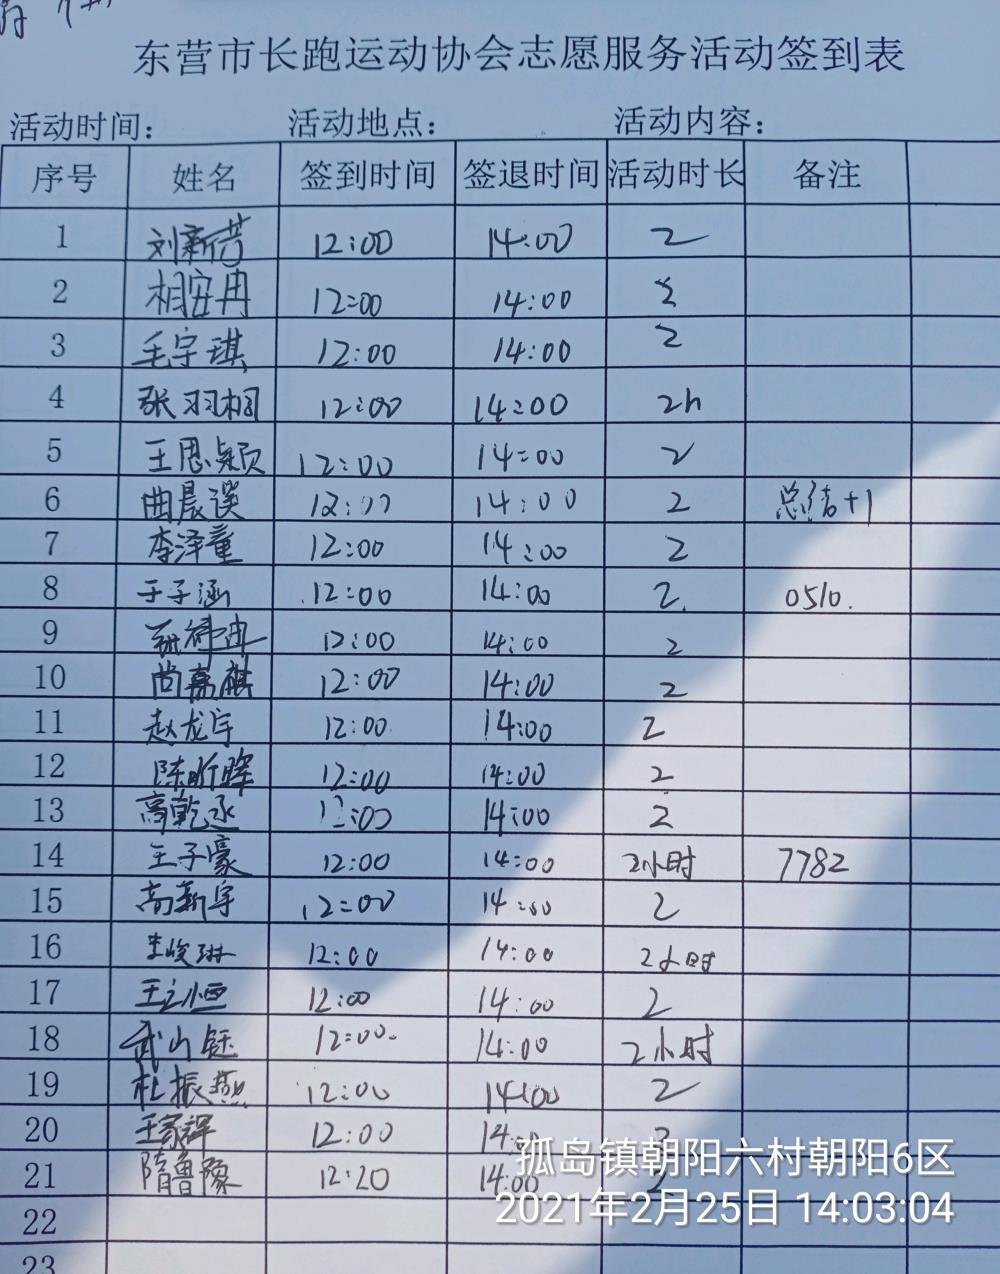 东营市长跑运动协会志愿服务活动签到表
活动时间： 活动地点： 活动内容：
序号 姓名 签到时间 签退时间 活动时长 备注
1 刘新芳 12:00 14:00 2
2 相安冉 12:00 14:00 2
3 毛宇琪 12:00 14:00 2
4 张羽桐 12:00 14:00 2h
5 王思颖 12:00 14:00 2
6 曲晨溪 12:00 14:00 2 总结+1
7 李泽童 12:00 14:00 2
8 于子涵 12:00 14:00 2. 0510.
9 12:00 14:00 2
10 尚嘉祺 12:00 14:00 2
11 赵龙宇 12:00 14:00 2
12 陈昕晖 12:00 14:00 2
13 高乾丞 12:00 14:00 2
14 王子豪 12:00 14:00 2小时 7782
15 高新宇 12:00 14:00 2
16 李峻琳 12:00 14:00 2小时
17 王之恒 12:00 14:00 2
18 武山钰 12:00 14:00 2小时
19 杜振燕 12:00 14:00 2
20 王家辉 12:00 14:00
21 隋鲁豫 12:20 14:00
22
23
孤岛镇朝阳六村朝阳6区
2021年2月25日 14:03:04